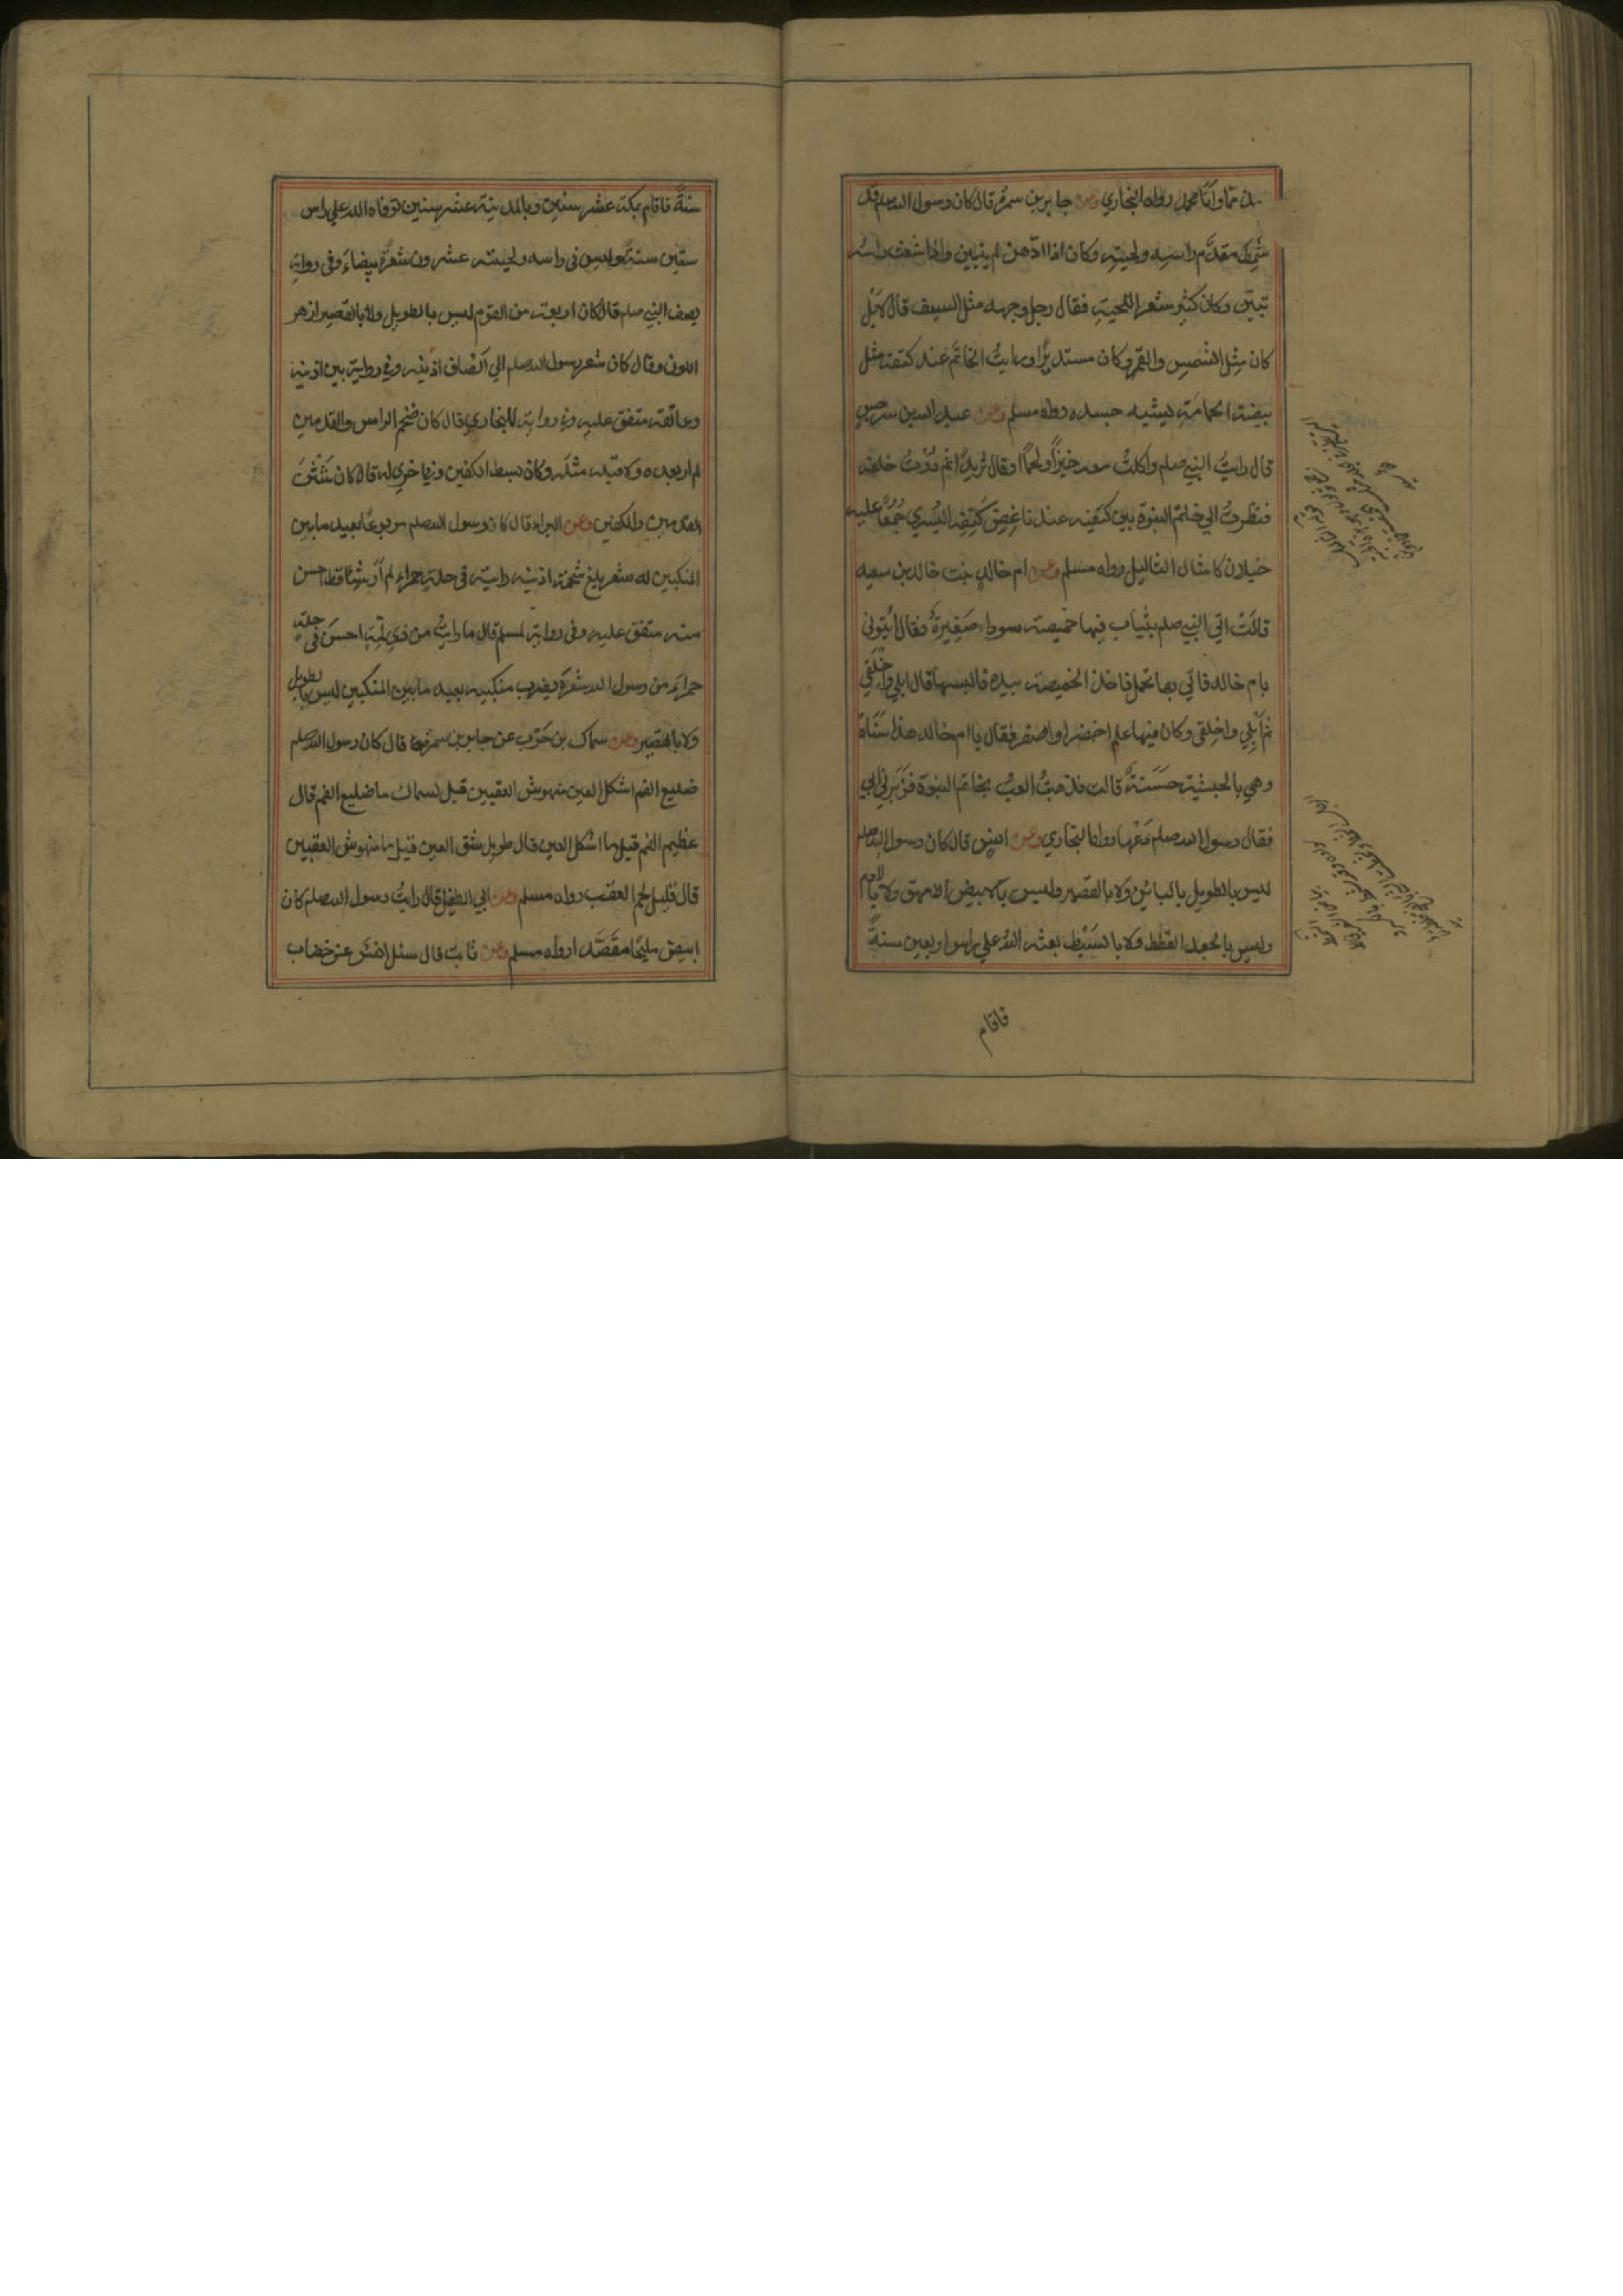 مذمما وانا محمد رواه البخاري وعن جابر بن سمرة قال كان رسول الله صلعم قد
شَمِطَ مقدَّم راسِه ولحيتِه وكان اذا ادّهن لم يتبين واذا شعث راسُه
تبيّن وكان كثير شعر اللحيةِ فقال رجل وجهه مثل السيف قال لا بَلْ
كان مِثل الشمسِ والقمر وكان مستديرًا ورايتُ الخاتَم عند كتفه مثل
بيضة الحمامَةِ يشبه جسده رواه مسلم وعن عبد الله بن سرجس
قال رايتُ النبي صلعم واكلتُ معه خبزًا ولحمًا او قال ثريدًا ثم دُرْتُ خلفه
فنظرتُ الي خاتم النبوة بين كتفيه عند ناغِضِ كَتِفِه اليُسري جُمْعًا عليه
خيلان كامثال الثاليل رواه مسلم وعن ام خالدٍ بنت خالد بن سعيد
قالَتْ اتي النبي صلعم بثياب فيها خميصة سوداء صَغِيرةٌ فقال ائتوني
بام خالد فاتي بها تحمل فاخذ الخميصة بيده فالبسها قال ابلي واخلقي
ثم اَبْلِي واخلِقي وكان فيها علم اخضر او اصفر فقال يا ام خالد هذا سَنَاهْ
وهي بالحبشية حَسَنَةٌ قالت فذهبتُ العبُ بخاتم النبوة فزَبَرني ابي
فقال رسول الله صلعم دَعْها رواه البخاري وعن انسٍ قال كان رسول الله صلعم
ليس بالطويل بالبائن ولا بالقصير وليس بالابيض الامهق ولا بالآدم
وليس بالجعد القطط ولا بالسَبْطِ بعثه اللهُ علي راس اربعين سنةً
فاقام
سنةً فاقام بمكة عشر سنين وبالمدينة عشر سنين توفاه الله علي راس
ستين سنة وليس في راسه ولحيته عشرون شعرةً بيضاءَ وفي روايةٍ
يصف النبي صلعم قال كان ربعة من القوم ليس بالطويل ولا بالقصير ازهر
اللون وقال كان شعر رسول الله صلعم الي اَنْصاف اذنيه وفي رواية بين اذنيه
وعاتقه متفق عليه وفي رواية للبخاري قال كان ضخم الراس والقدمين
لم ار بعده ولا قبله مثلَه وكان بسط الكفين وفي اخري له قال كان شَثْنَ
القدمين والكفين وعن البراء قال كان رسول الله صلعم مربوعًا بعيد ما بين
المنكبين له شعر بلغ شحمة اذنيه رايته في حلةٍ حمراء لم اَر شيئا قط احسن
منه متفق عليه وفي رواية لمسلم قال ما رايتُ من ذي لِمّةٍ احسنَ في حلةٍ
حمراءَ من رسول الله شعره يضرب منكبيه بعيد ما بين المنكبين ليس بالطويل
ولا بالقصير وعن سماك بن حَرْب عن جابر بن سمرة قال كان رسول الله صلعم
ضليع الفم اشكل العين منهوش العقبين قيل لسماك ما ضليع الفم قال
عظيم الفم قيل ما اشكل العين قال طويل شق العين قيل ما منهوش العقبين
قال قليل لحم العقب رواه مسلم وعن ابي الطفيل قال رايتُ رسول الله صلعم كان
ابيض مليحًا مقصَّدا رواه مسلم وعن ثابت قال سئل انس عن خضاب